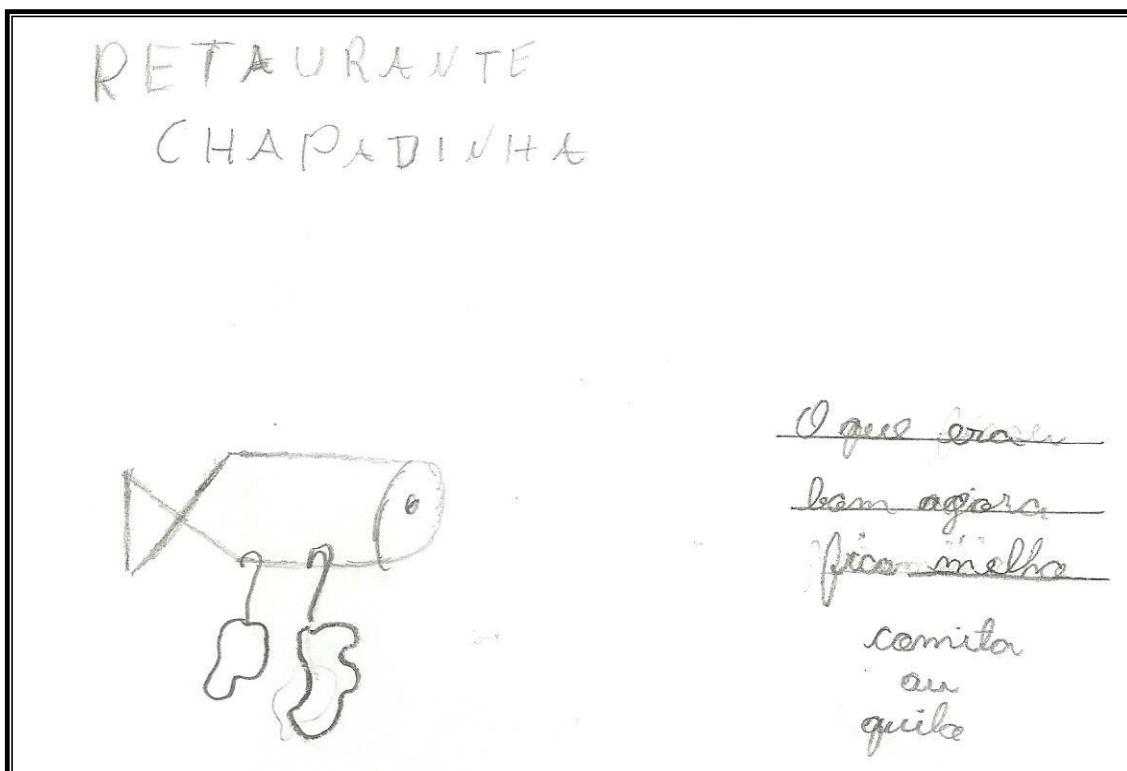 RETAURANTE
CHAPADINHA
O que era
bom agora
fico melho
comita
au
quilo